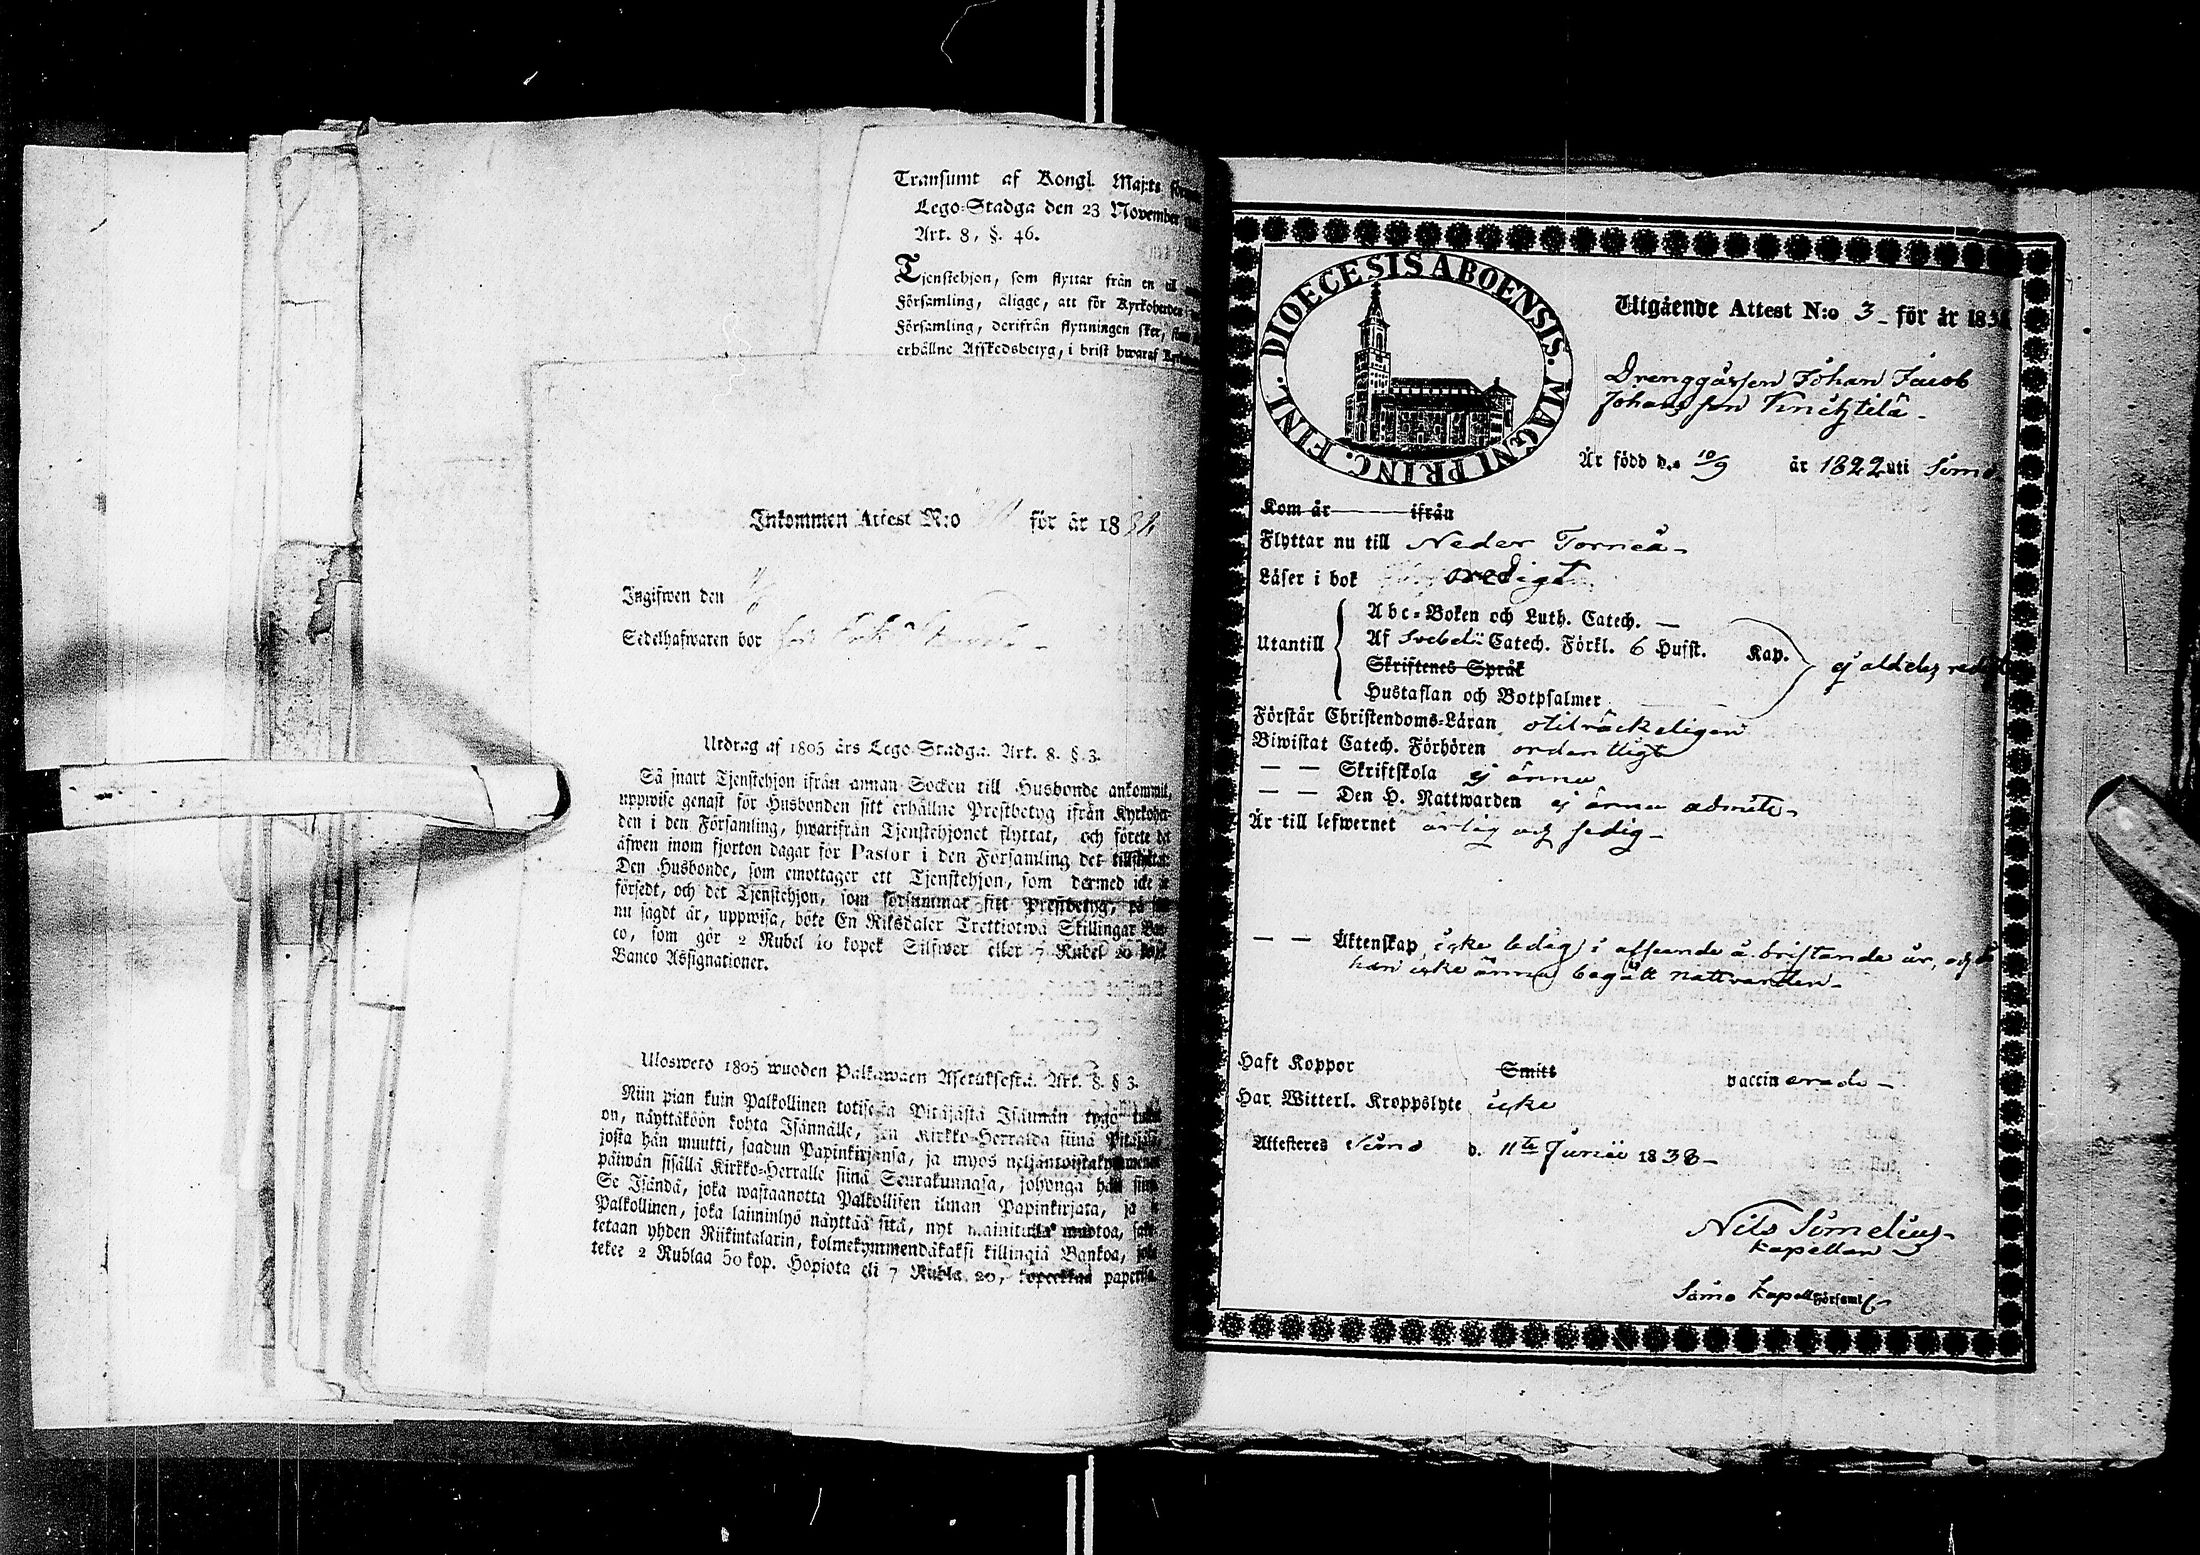 Transumt af Kongl. Maj:ts
Lego-Stadga den 23 November
Art. 8, §. 46.
Tjenstehjon, som flyttar från en till
Församling, åligge, att för Kyrkoherden
Församling, derifrån flyttningen sker,
erhållne Afskedsbetyg, i brist hwaraf
Inkommen Attest N:o för år 18
Ingifwen den
Sedelhafwaren bor
Utdrag af 1805 års Lego-Stadga. Art. 8. § 3.
Så snart Tjenstehjon ifrån annan Socken till Husbonde ankommit,
uppwise genast för Husbonden sitt erhållne Prestbetyg ifrån Kyrkoher-
den i den Församling, hwarifrån Tjenstehjonet flyttat, och förete det
äfwen inom fjorton dagar för Pastor i den Församling det tillflyttat.
Den Husbonde, som emottager ett Tjenstehjon, som dermed icke är
försedt, och det Tjenstehjon, som försummar sitt Prestbetyg, på sätt
nu sagdt är, uppwisa, böte En Riksdaler Trettiotwå Skillingar Ban-
co, som gör 2 Rubel 10 kopek Silfwer eller 7 Rubel 20 kop.
Banco Assignationer.
Ulosweto 1805 wuoden Palkawäen Asetuksesta. Art. 8. § 3.
Niin pian kuin Palkollinen toisesta Pitäjästä Isännän tygö tullut
on, näyttäköön kohta Isännälle, sen Kirkko-Herralda siinä Pitäjäsä,
josta hän muutti, saadun Papinkirjansa, ja myös neljäntoistakymmenen
päiwän sisällä Kirkko-Herralle siinä Seurakunnasa, johonga hän
Se Isändä, joka wastaanotta Palkollisen ilman Papinkirjata, ja
Palkollinen, joka laiminlyö näyttää sitä, nyt mainitulla muotoa,
tetaan yhden Riikintalarin, kolmekymmendäkaksi killingiä Bankoa, joka
tekee 2 Rublaa 50 kop. Hopiota eli 7 Rubla 20, kopeekkaa paperisa.
DIOECESIS ABOENSIS. MAGNI PRINC. FINL.
Utgående Attest N:o 3 - för år 183
Drenggåssen Johan Jacob
Johansson Knichtilä -
Är född d. 10/9 år 1822 uti Simo
Kom år ifrån
Flyttar nu till Neder Torneå -
Läser i bok oredigt
Utantill
Abc-Boken och Luth. Catech. —
Af Svebelii Catech. Förkl. 6 Hufst. Kap.
ej aldeles redigt
Skriftenes Språk
Hustaflan och Botpsalmer
Förstår Christendoms-Läran otilräckeligen
Biwistat Catech. Förhören ordentligt
— — Skriftskola ej ännu
— — Den H. Nattwarden ej ännu admitt. -
Är till lefwernet ärlig och sedig -
— — Äktenskap icke ledig i afseende å bristande år, och då
han icke ännu begått nattvarden -
Haft Koppor Smitt vaccinerade -
Har Witterl. Kroppslyte icke
Attesteres Simo d. 11te Junii 1838 -
Nils Simelius -
Kapellan
Simo Kapell Församl.